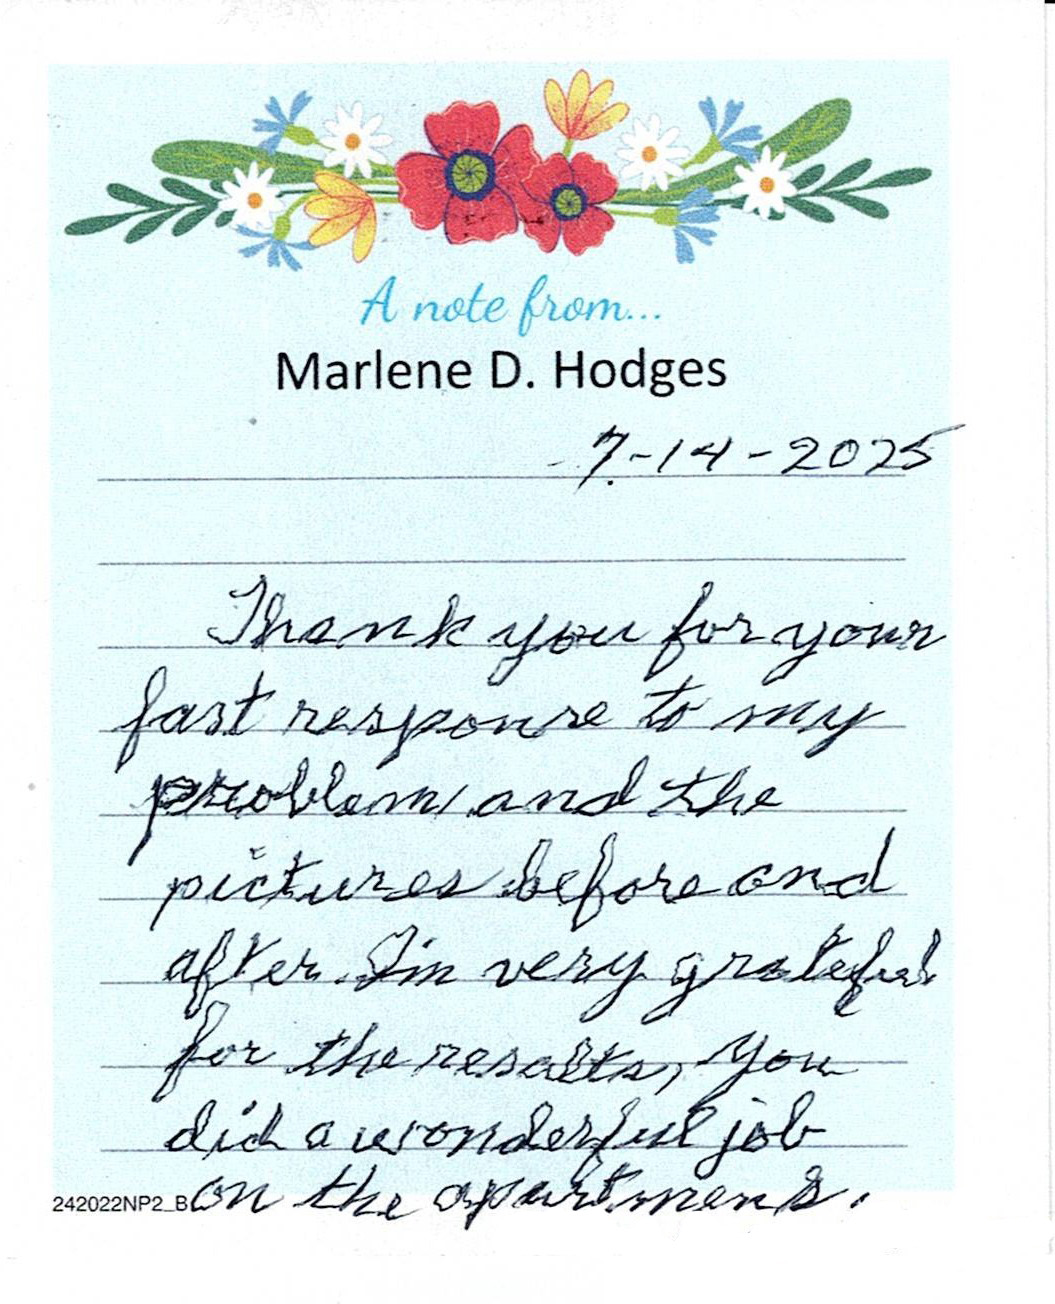 A note from...
Marlene D. Hodges
7-14-2025
Thank you for your
fast response to my
problem, and the
pictures before and
after. I'm very grateful
for the results, you
did a wonderful job
on the apartments.
242022NP2_B